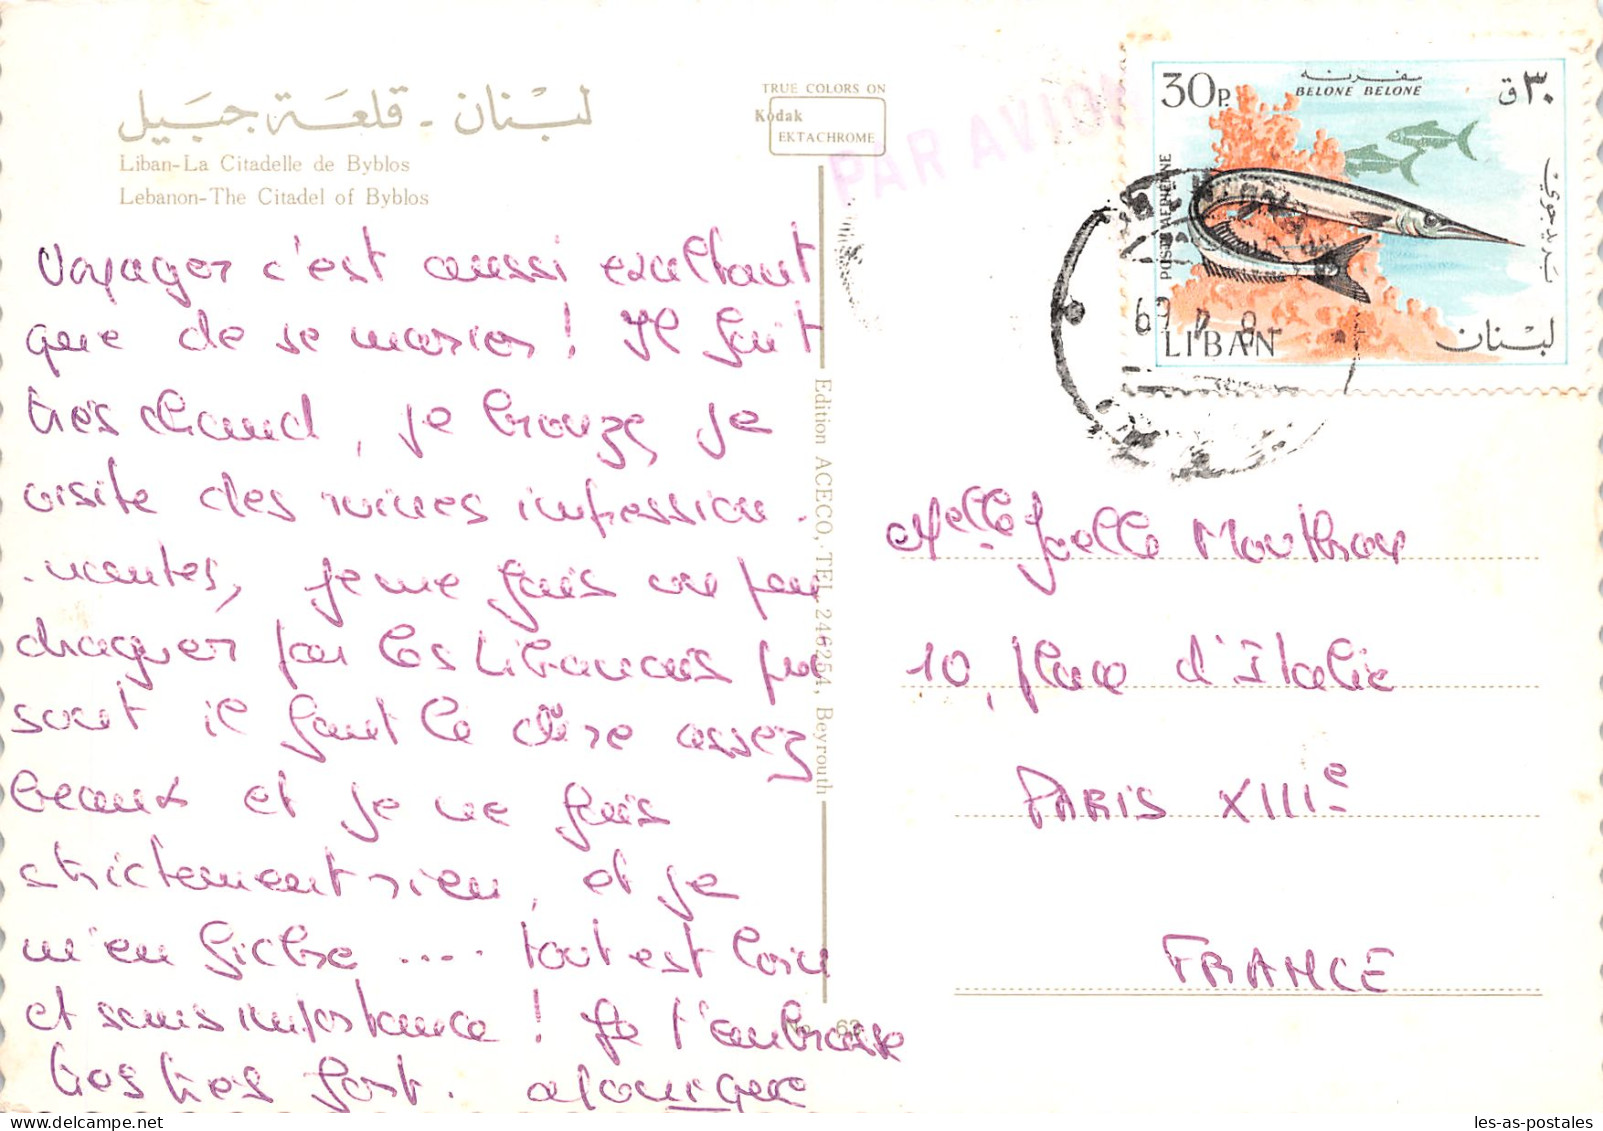 لبنان - قلعة جبيل
Liban-La Citadelle de Byblos
Lebanon-The Citadel of Byblos
TRUE COLORS ON
Kodak
EKTACHROME
PAR AVION
30P.
٣٠ ق
BELONE BELONE
POSTE AERIENNE
بريد جوي
LIBAN
لبنان
Voyager c'est aussi exultant
que de se marier ! Il fait
très chaud, je bronze, je
visite des ruines impression-
-nantes, je me fais un peu
draguer par les Libanais qui
sont il faut le dire assez
beaux et je ne fais
strictement rien, et je
m'en fiche .... tout est loin
et sans importance ! Je t'embrasse
très très fort.
Edition ACECO, TEL. 246254, Beyrouth
No. 62
Melle Joelle
10, place d'Italie
PARIS XIIIe
FRANCE
les-as-postales